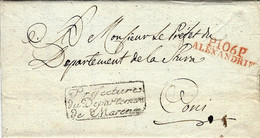 A Monsieur le Préfet du
P.106.P
ALEXANDRIE
Département de la Stura
Préfecture
du Département
de Marengo
Coni